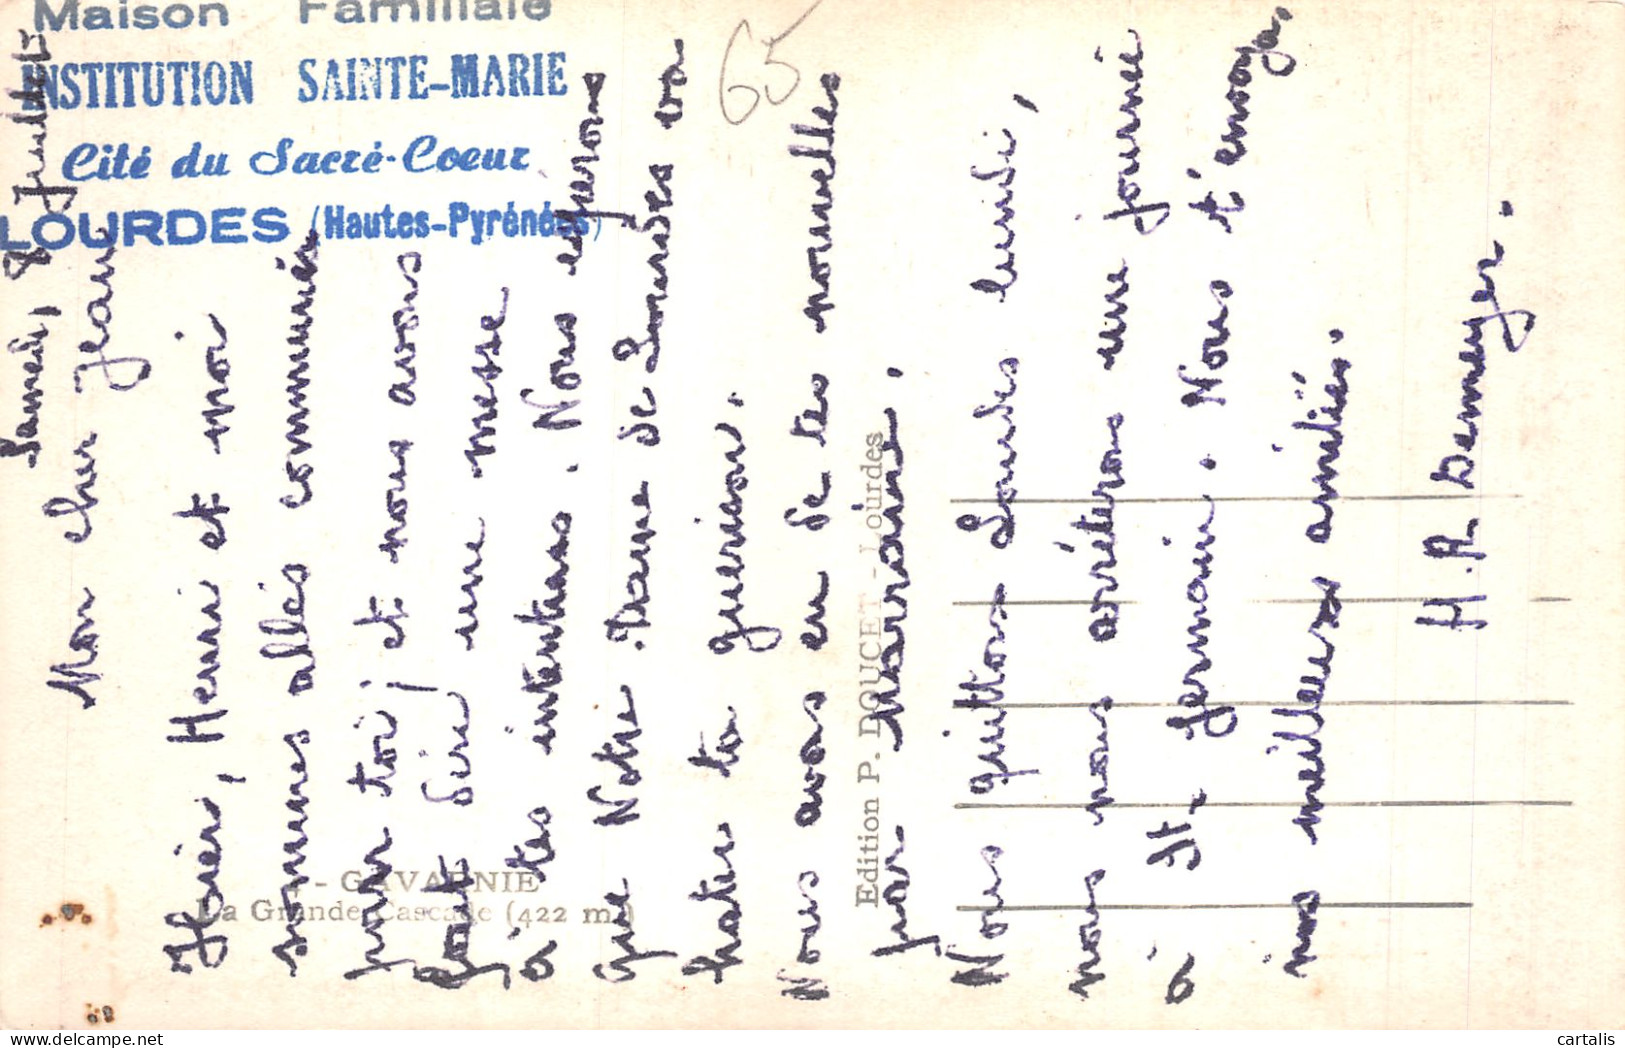 Maison Familiale
INSTITUTION SAINTE-MARIE
Cité du Sacré-Coeur
LOURDES (Hautes-Pyrénées)
65
Samedi, 8 Juillet
Mon cher Jean
Hier, Henri et moi
sommes allés communier
pour toi ; et nous avons
fait dire une messe
à tes intentions. Nous espérons
que Notre Dame de Lourdes va
hater ta guérison.
Nous avons eu de tes nouvelles
par Marraine.
Nous quittons Lourdes lundi,
nous nous arrêterons une journée
à St-Germain. Nous t'envoyons
nos meilleures amitiés.
H.R. Demeyer.
- GAVARNIE
La Grande Cascade (422 m.)
Edition P. DOUCET - Lourdes
cartalis